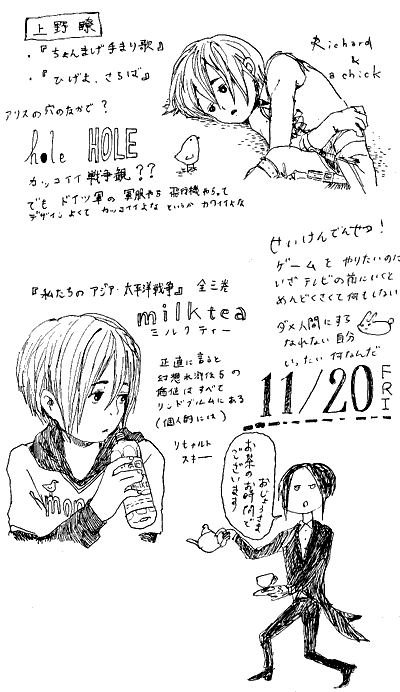 上野瞭
・『ちょんまげ手まり歌』
・『ひげよ、さらば』
アリスの穴のなかで?
hole HOLE
カッコイイ戦争観??
でも ドイツ軍の 軍服やら 飛行機やらって
デザインよくて カッコイイよな というか カワイイよな
Richard
&
a chick
せいけんでんせつ!
ゲームを やりたいのに
いざテレビの前にいくと
めんどくさくて何もしない
ダメ人間にすら
なれない自分
いったい何なんだ
『私たちのアジア・太平洋戦争』 全三巻
milktea
ミルクティー
正直に言ると
幻想水滸伝5の
価値はすべて
リンドブルムにある
(個人的には)
リヒャルト
スキー
11/20 FRI
おじょうさま
お茶のお時間で
ございます